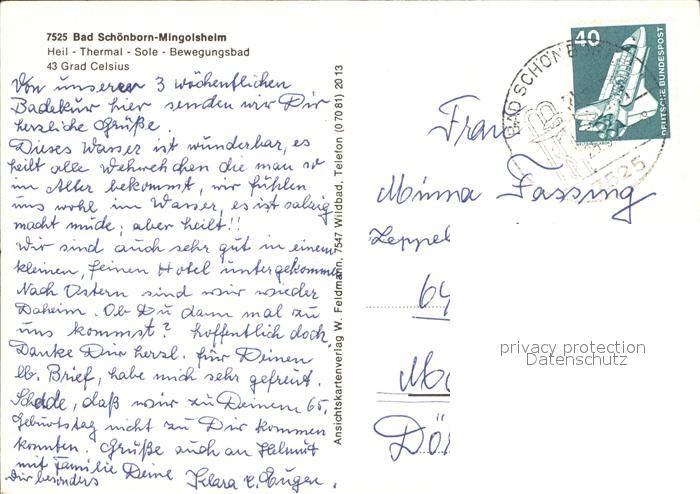 7525 Bad Schönborn-Mingolsheim
Heil - Thermal - Sole - Bewegungsbad
43 Grad Celsius
Von unserer 3 wöchentlichen
Badekur hier senden wir Dir
herzliche Grüße.
Dieses Wasser ist wunderbar, es
heilt alle Wehwehchen die man so
im Alter bekommt, wir fühlen
uns wohl im Wasser, es ist salzig
macht müde; aber heilt!!
Wir sind auch sehr gut in einem
kleinen, feinen Hotel untergekommen
Nach Ostern sind wir wieder
Daheim. Ob Du dann mal zu
uns kommst? hoffentlich doch,
Danke Dir herzl. für Deinen
lb. Brief, habe mich sehr gefreut.
Schade, daß wir zu Deinem 65.
Geburtstag nicht zu Dir kommen
konnten. Grüße auch an Helmut
mit Familie Deine Klara u. Eugen.
Dir besonders
Ansichtskartenverlag W. Feldmann, 7547 Wildbad, Telefon (07081) 2013
40
DEUTSCHE BUNDESPOST
BAD SCHÖNB
7525
Frau
Minna Fassing
Zeppel
64
Mö
Dör
privacy protection
Datenschutz